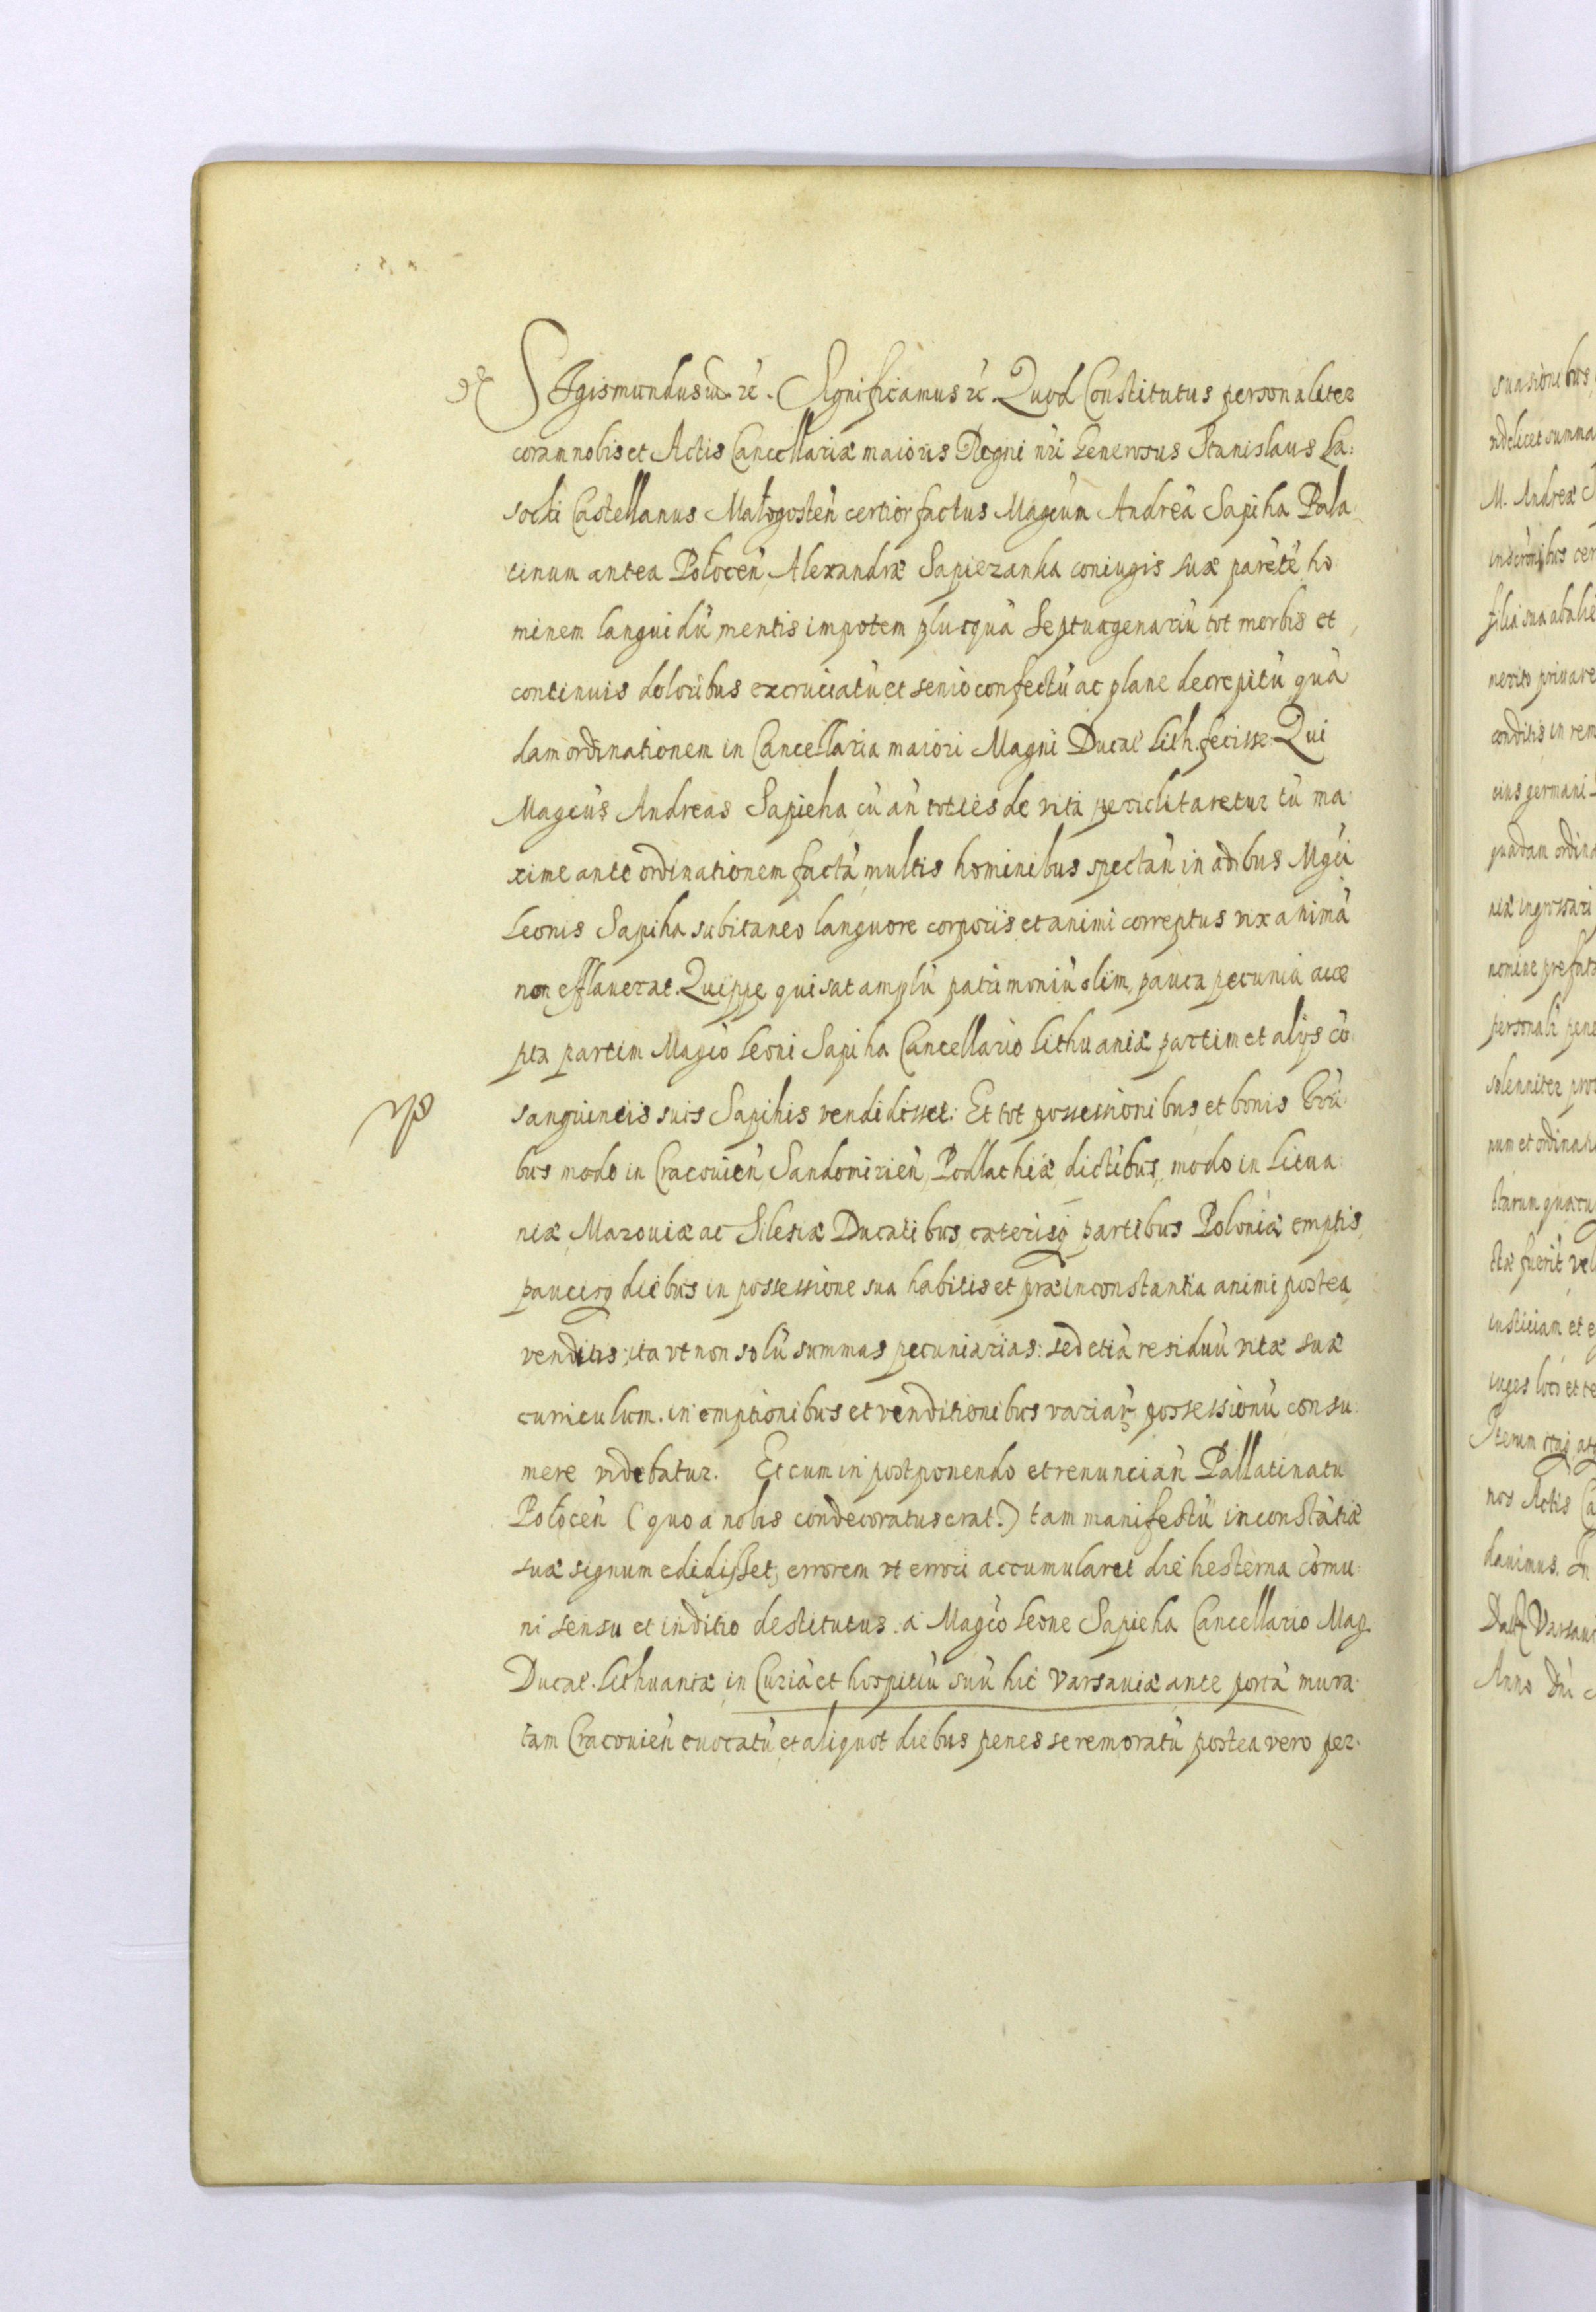 Sigismundus III etc. Significamus etc. Quod Constitutus personaliter
coram nobis et Actis Cancellariæ maioris Regni nri Generosus Stanislaus La:
socki Castellanus Małogosten̄ certior factus Magcum Andreā Sapiha Pala
tinum antea Połocen̄ Alexandræ Sapiezanka coniugis suæ parētē ho
minem languidū, mentis impotem plusquā Septuagenariū tot morbis et
continuis doloribus excruciatū et senio confectū ac plane decrepitū quā
dam ordinationem in Cancellaria maiori Magni Ducat Lith. fecisse. Qui
Magcus Andreas Sapieha cū an̄ toties de vita periclitaretur tū ma
xime ante ordinationem factā multis hominibus spectan̄ in ædibus Mgci
Leonis Sapiha subitaneo languore corporis et animi correptus vix animā
non efflaverat. Quippe qui sat amplū patrimoniū olim, pauca pecunia acce
pta partim Magco Leoni Sapiha Cancellario Lithuaniæ partim et alijs cō
sanguineis suis Sapihis vendidisset. Et tot possessionibus et bonis
bus modo in Cracovien̄, Sandomirien̄, Podlachiæ, modo in Litua
niæ Mazouiæ ac Silesiæ Ducatibus, cæterisq partibus Poloniæ emptis,
paucisq diebus in possessione sua habitis et præ inconstantia animi postea
venditis; ita vt non solū summas pecuniarias: sed etiā residuū vitæ suæ
curriculum. in emptionibus et venditionibus variar possessionū consu:
mere videbatur. Et cum in postponendo et renuncian̄ Pallatinatu
Połocen̄ (quo a nobis condecoratus erat.) tam manifestū inconstātiæ
suæ signum edidisset, errorem vt errori accumularet die hesterna cōmu:
ni sensu et inditio destitutus. a Magco Leone Sapieha Cancellario Mag.
Ducat. Lithuaniæ in Curiā et hospitiū suū hic Varsaviæ ante portā mura:
tam Cracovien̄ euocatū et aliquot diebus penes se remoratū postea vero per.